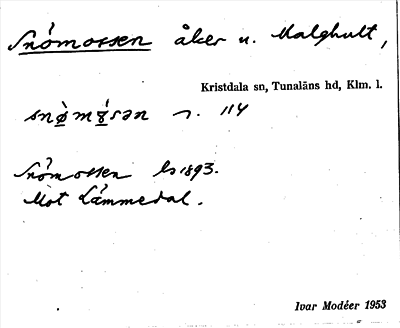 Snömossen åker u. Malghult,
Kristdala sn, Tunaläns hd, Klm. l.
snø̀mɷ́sən 114
Snömossen Ls 1893.
Mot Lämmedal.
Ivar Modéer 1953